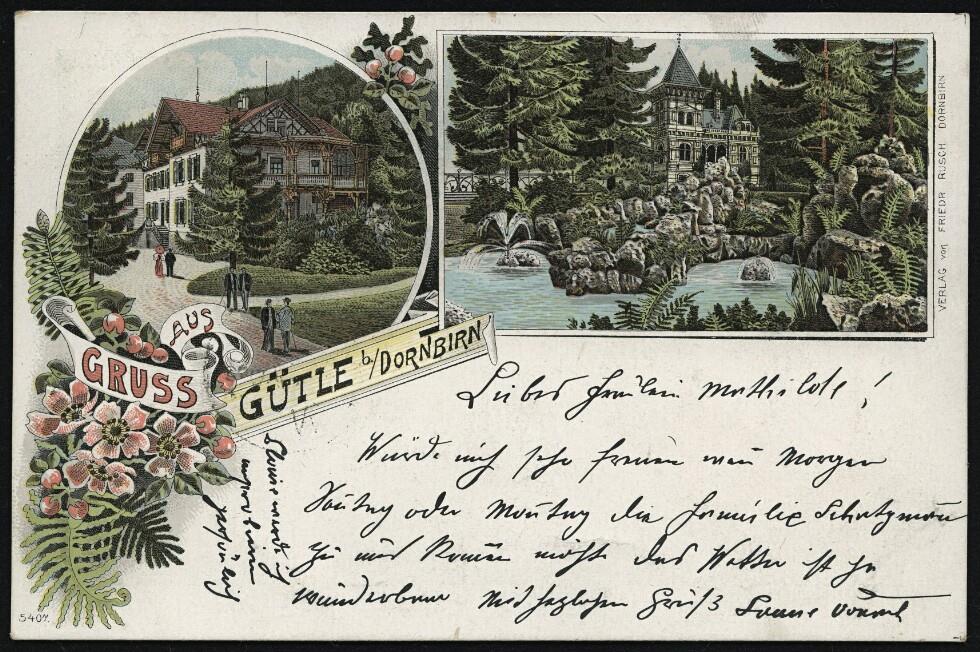 GRUSS
AUS
GÜTLE b./DORNBIRN
VERLAG von FRIEDR RUSCH DORNBIRN
Liebes Fräulein Mathilde!
Würde mich sehr freuen wen Morgen
Sontag oder Montag die Familie Schatzman
zu uns komen möcht das Wetter ist ja
wunderbar Mit herzlichen Gruß
5407.